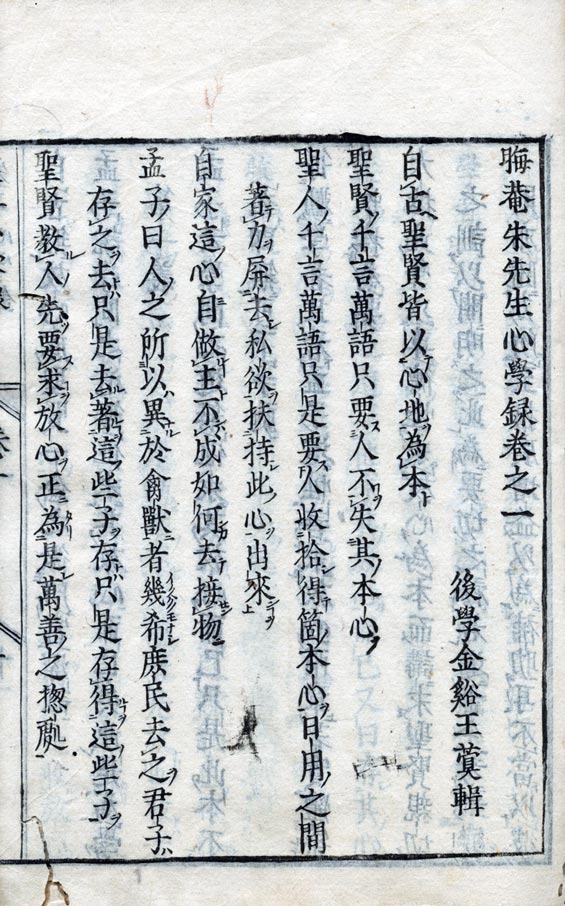 晦菴朱先生心學録卷之一
後學金谿王蓂輯
自古聖賢皆以心地為本
聖賢千言萬語只要人不失其本心
聖人千言萬語只是要人收拾得箇本心日用之間
著力屏去私欲扶持此心出來
自家這心自做主不成如何去接物
孟子曰人之所以異於禽獸者幾希庶民去之君子
存之去只是去著這些子存只是存得這些子
聖賢教人先要求放心正為是萬善之揔處